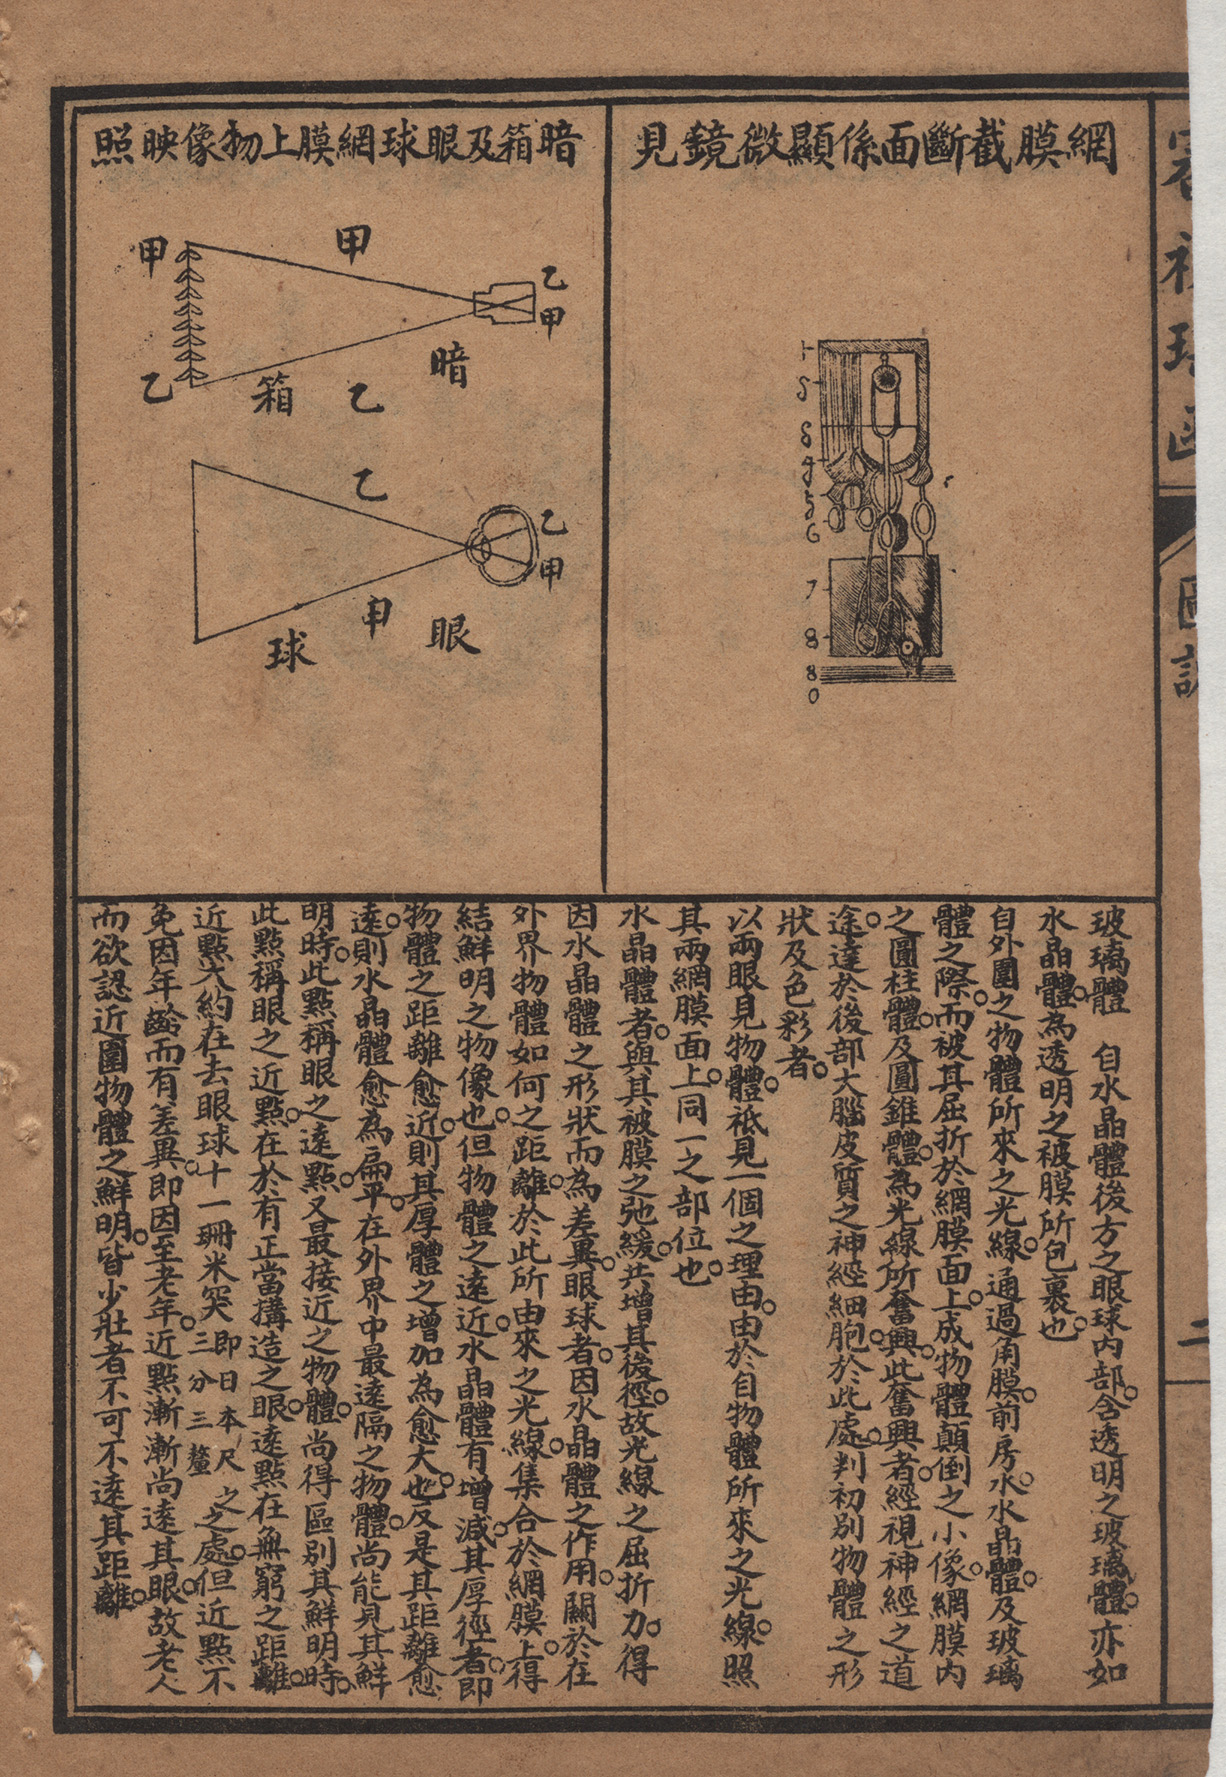 網膜截斷面係顯微鏡見
1
5
6
4
5
6
7
8
8
0
暗箱及眼球網膜上物像映照
甲
甲
乙
甲
乙
箱
乙
暗
乙
乙
甲
甲
球
眼
圖說
二
玻璃體　自水晶體後方之眼球內部。含透明之玻璃體。亦如
水晶體。為透明之被膜所包裹也。
自外圍之物體所來之光線。通過角膜。前房水。水晶體。及玻璃
體之際。而被其屈折於網膜面上。成物體顛倒之小像。網膜內
之圓柱體。及圓錐體。為光線所奮興。此奮興者。經視神經之道
途。達於後部大腦皮質之神經細胞。於此處。判初別物體之形
狀及色彩者。
以兩眼見物體。祇見一個之理由。由於自物體所來之光線。照
其兩網膜面上。同一之部位也。
水晶體者。與其被膜之弛緩。共增其後徑。故光線之屈折力。得
因水晶體之形狀而為差異。眼球者。因水晶體之作用。關於在
外界物體如何之距離。於此所由來之光線。集合於網膜上。得
結鮮明之物像也。但物體之遠近。水晶體有增減。其厚徑者。即
物體之距離愈近。則其厚體之增加為愈大也。反是其距離愈
遠。則水晶體愈為扁平。在外界中最遠隔之物體。尚能見其鮮
明時。此點稱眼之遠點。又最接近之物體。尚得區別其鮮明時。
此點稱眼之近點。在於有正當搆造之眼。遠點在無窮之距離。
近點大約在去眼球十一珊米突即日本尺三分三釐之之處。但近點不
免因年齡而有差異。即因至老年。近點漸漸尚遠其眼。故老人
而欲認近圍物體之鮮明。皆少壯者不可不遠其距離。